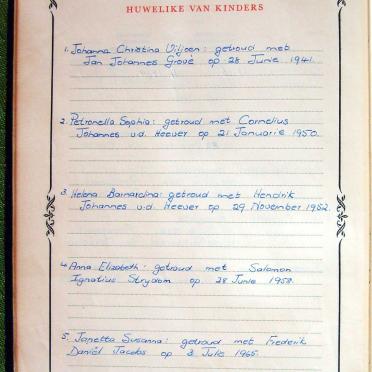 HUWELIKE VAN KINDERS
1. Johanna Christina Viljoen: getroud met
Jan Johannes Grové op 28 Junie 1941.
2. Petronella Sophia: getroud met Cornelius
Johannes v.d. Heever op 21 Januarie 1950.
3. Helena Barnardina: getroud met Hendrik
Johannes v.d. Heever op 29 November 1952.
4. Anna Elizabeth: getroud met Salomon
Ignatius Strydom op 28 Junie 1958.
5. Janetta Susanna: getroud met Frederik
Daniël Jacobs op 3 Julie 1965.